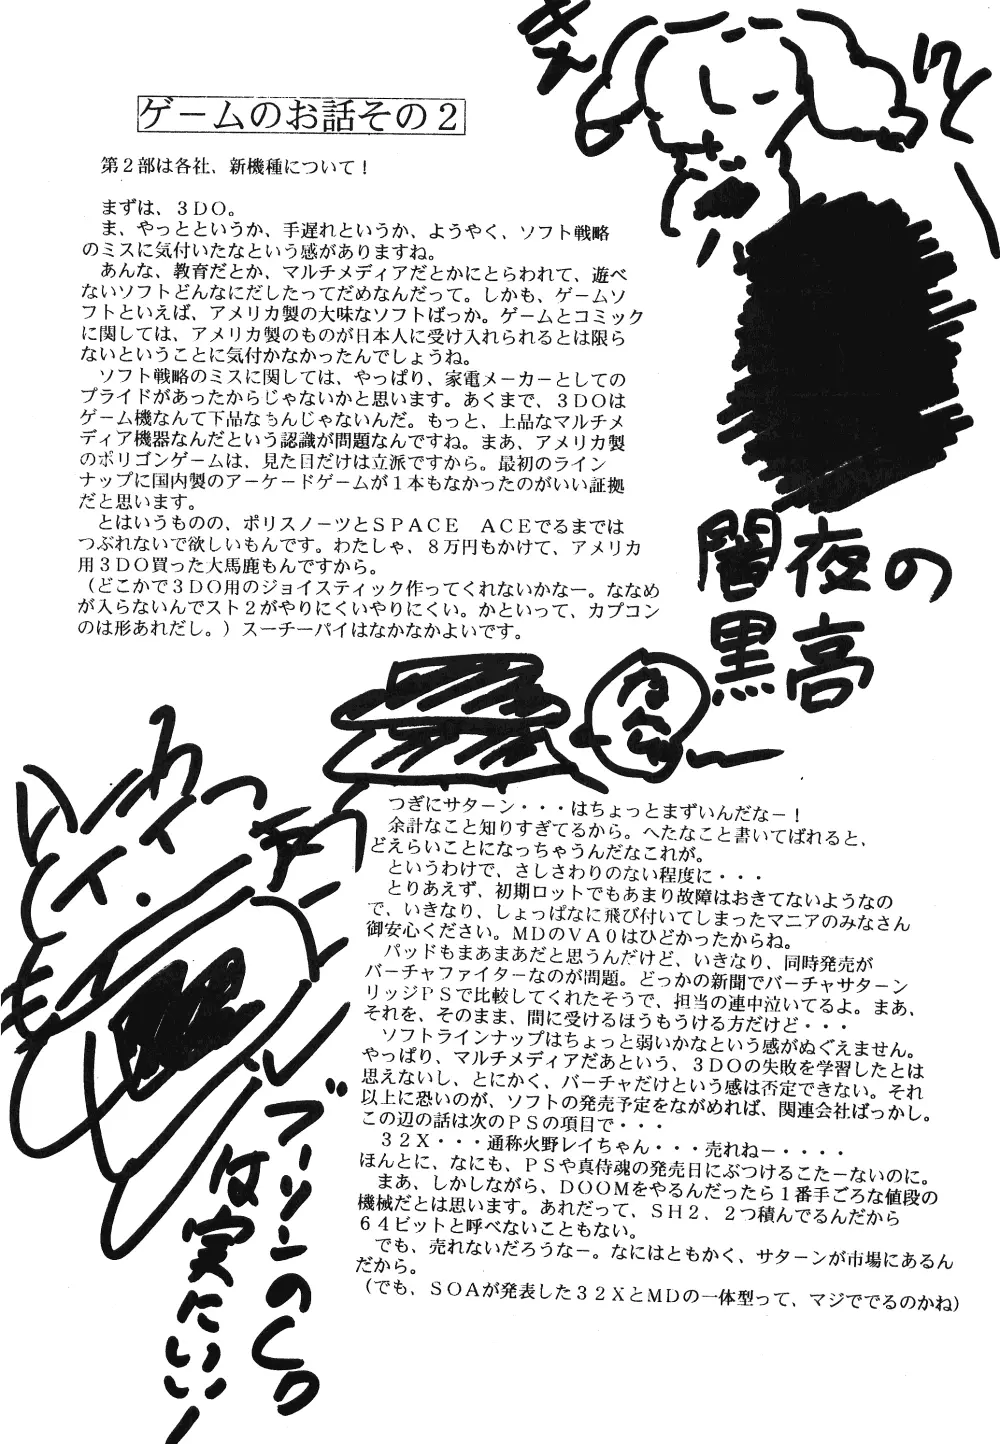 ゲームのお話その２
第２部は各社、新機種について！
まずは、３ＤＯ。
ま、やっとというか、手遅れというか、ようやく、ソフト戦略
のミスに気付いたなという感がありますね。
あんな、教育だとか、マルチメディアだとかにとらわれて、遊べ
ないソフトどんなにだしたってだめなんだって。しかも、ゲームソ
フトといえば、アメリカ製の大味なソフトばっか。ゲームとコミック
に関しては、アメリカ製のものが日本人に受け入れられるとは限ら
ないということに気付かなかったんでしょうね。
ソフト戦略のミスに関しては、やっぱり、家電メーカーとしての
プライドがあったからじゃないかと思います。あくまで、３ＤＯは
ゲーム機なんて下品なもんじゃないんだ。もっと、上品なマルチメ
ディア機器なんだという認識が問題なんですね。まあ、アメリカ製
のポリゴンゲームは、見た目だけは立派ですから。最初のライン
ナップに国内製のアーケードゲームが１本もなかったのがいい証拠
だと思います。
とはいうものの、ポリスノーツとＳＰＡＣＥ　ＡＣＥでるまでは
つぶれないで欲しいもんです。わたしゃ、８万円もかけて、アメリカ
用３ＤＯ買った大馬鹿もんですから。
（どこかで３ＤＯ用のジョイスティック作ってくれないかなー。ななめ
が入らないんでスト２がやりにくいやりにくい。かといって、カプコン
のは形あれだし。）スーチーパイはなかなかよいです。
闇夜の
黒高
つぎにサターン・・・はちょっとまずいんだなー！
余計なこと知りすぎてるから。へたなこと書いてばれると、
どえらいことになっちゃうんだなこれが。
というわけで、さしさわりのない程度に・・・
とりあえず、初期ロットでもあまり故障はおきてないようなの
で、いきなり、しょっぱなに飛び付いてしまったマニアのみなさん
御安心ください。ＭＤのＶＡ０はひどかったからね。
パッドもまあまあだと思うんだけど、いきなり、同時発売が
バーチャファイターなのが問題。どっかの新聞でバーチャサターン
リッジＰＳで比較してくれたそうで、担当の連中泣いてるよ。まあ、
それを、そのまま、間に受けるほうもうける方だけど・・・
ソフトラインナップはちょっと弱いかなという感がぬぐえません。
やっぱり、マルチメディアだあという、３ＤＯの失敗を学習したとは
思えないし、とにかく、バーチャだけという感は否定できない。それ
以上に恐いのが、ソフトの発売予定をながめれば、関連会社ばっかし。
この辺の話は次のＰＳの項目で・・・
３２Ｘ・・・通称火野レイちゃん・・・売れねー・・・・
ほんとに、なにも、ＰＳや真侍魂の発売日にぶつけるこたーないのに。
まあ、しかしながら、ＤＯＯＭをやるんだったら１番手ごろな値段の
機械だとは思います。あれだって、ＳＨ２、２つ積んでるんだから
６４ビットと呼べないこともない。
でも、売れないだろうなー。なにはともかく、サターンが市場にあるん
だから。
（でも、ＳＯＡが発表した３２ＸとＭＤの一体型って、マジででるのかね）
は実にいい！